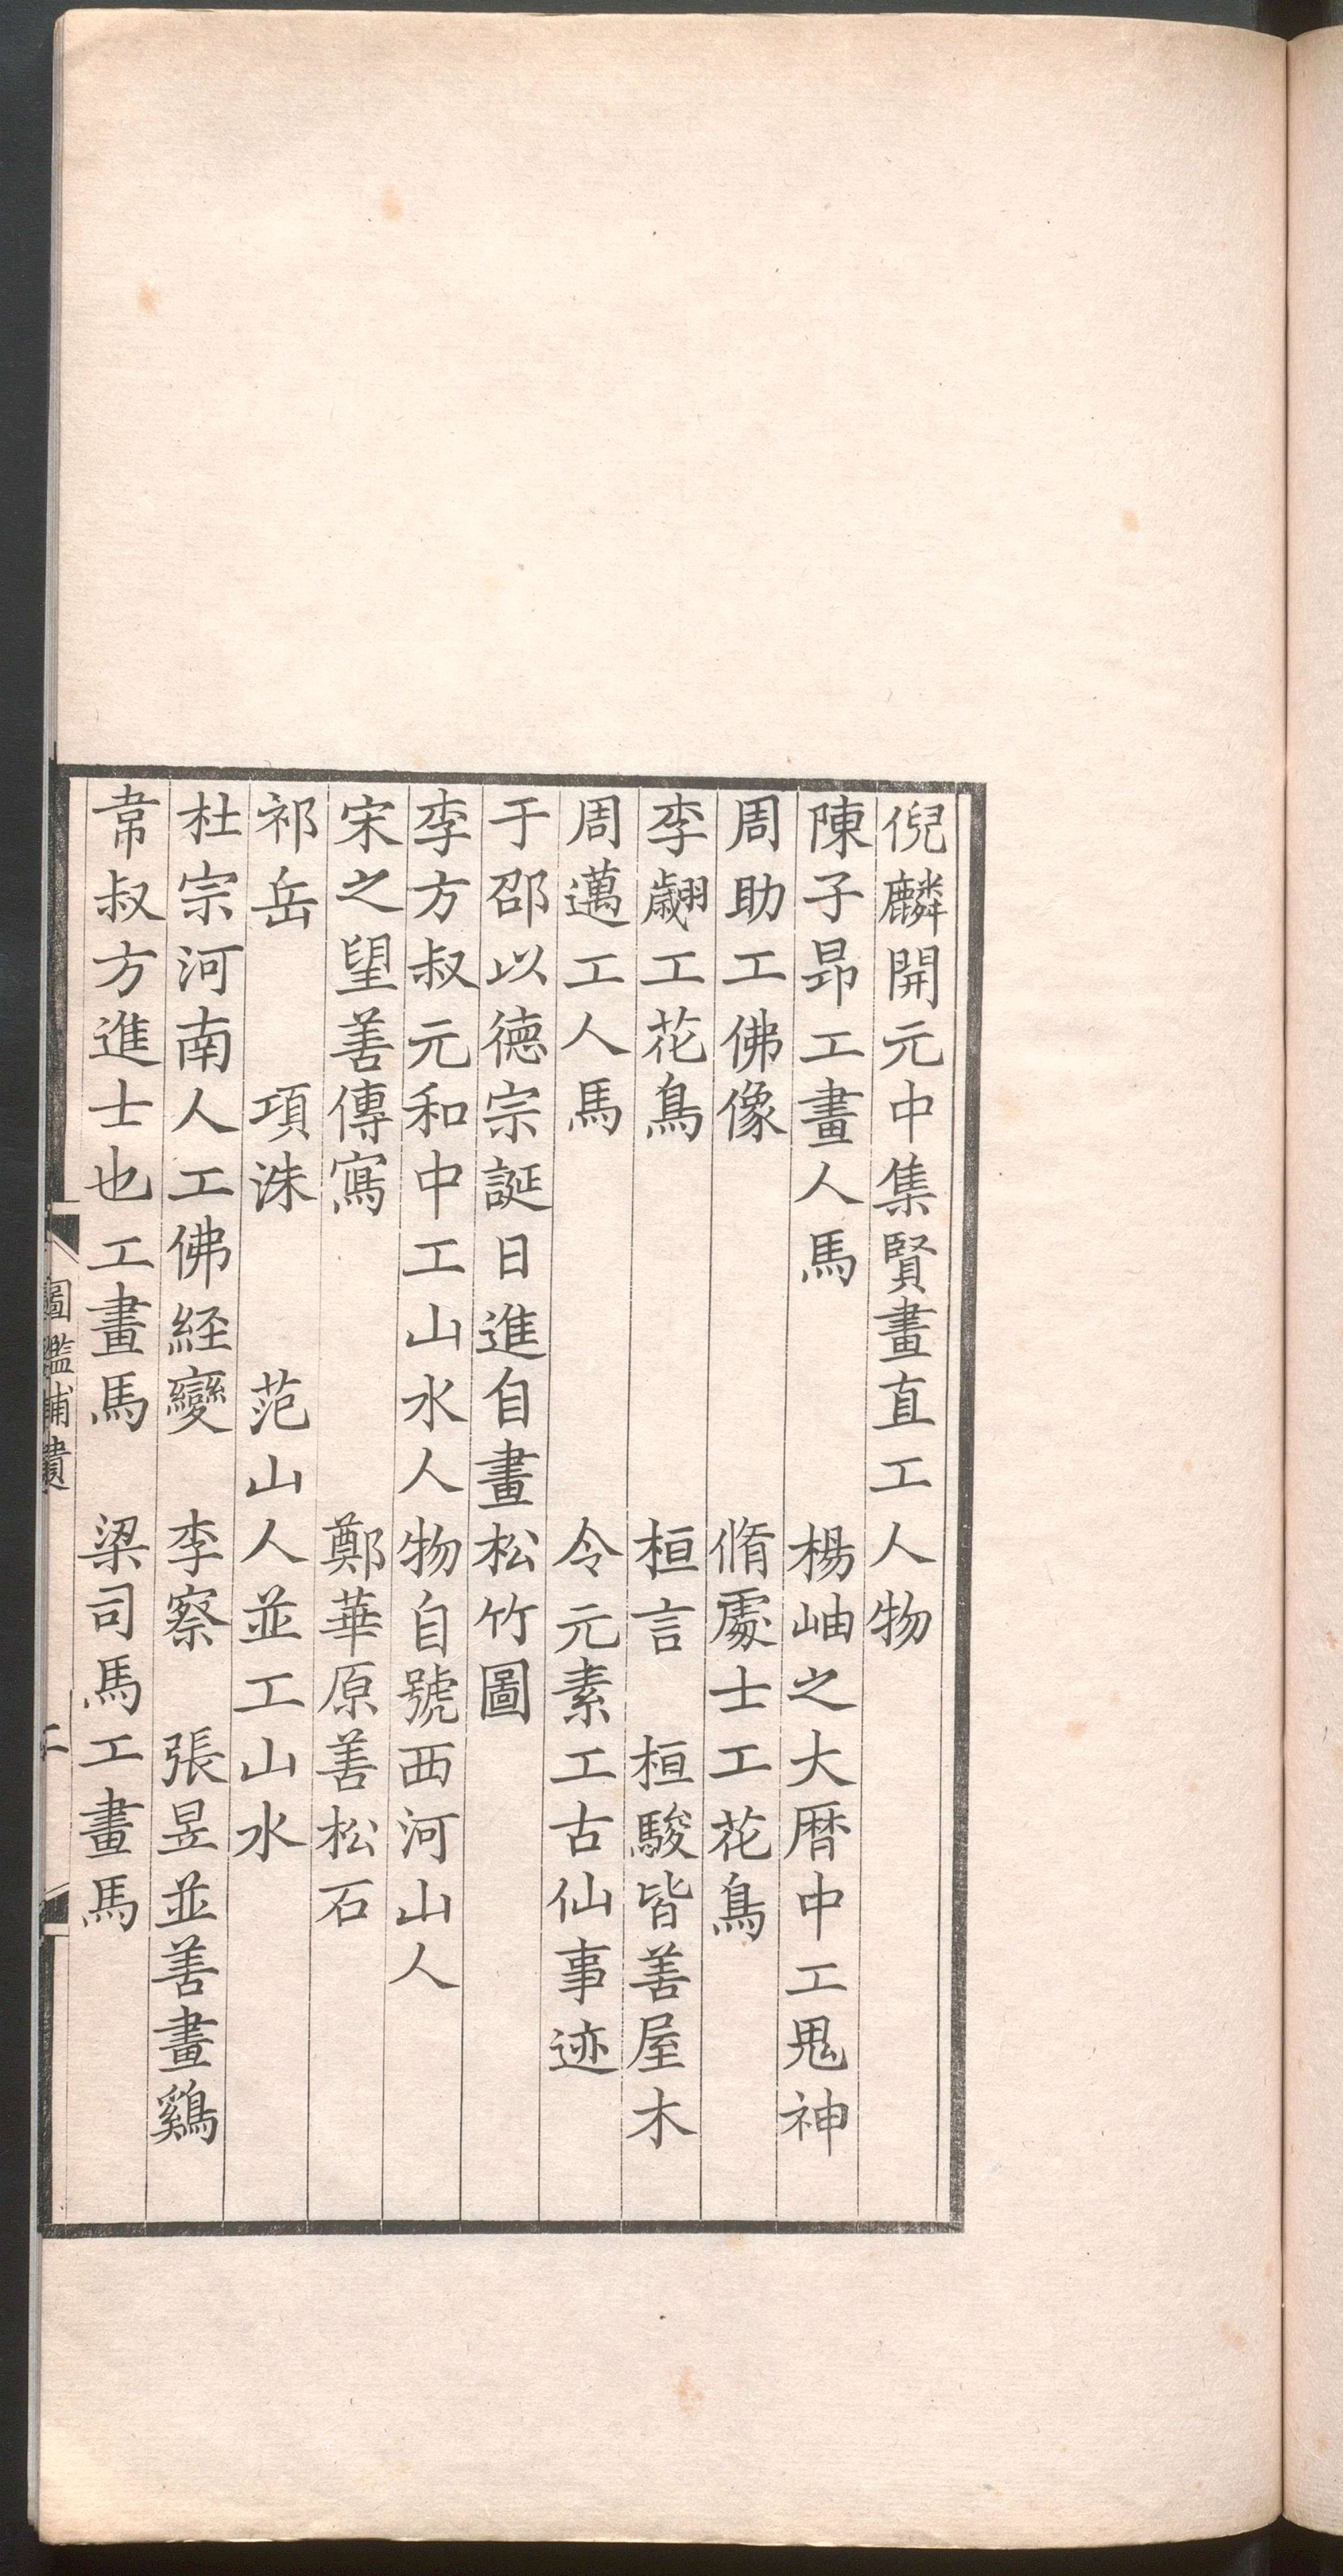 倪麟開元中集賢畫直工人物
陳子昻工畫人馬　楊岫之大暦中工鬼神
周助工佛像　脩處士工花鳥
李翽工花鳥　桓言　桓駿皆善屋木
周邁工人馬　令元素工古仙事迹
于邵以德宗誕日進自畫松竹圖
李方叔元和中工山水人物自號西河山人
宋之望善傳寫　鄭華原善松石
祁岳　項洙　范山人並工山水
杜宗河南人工佛経變　李察　張昱並善畫鷄
韋叔方進士也工畫馬　梁司馬工畫馬
圖鑑補遺